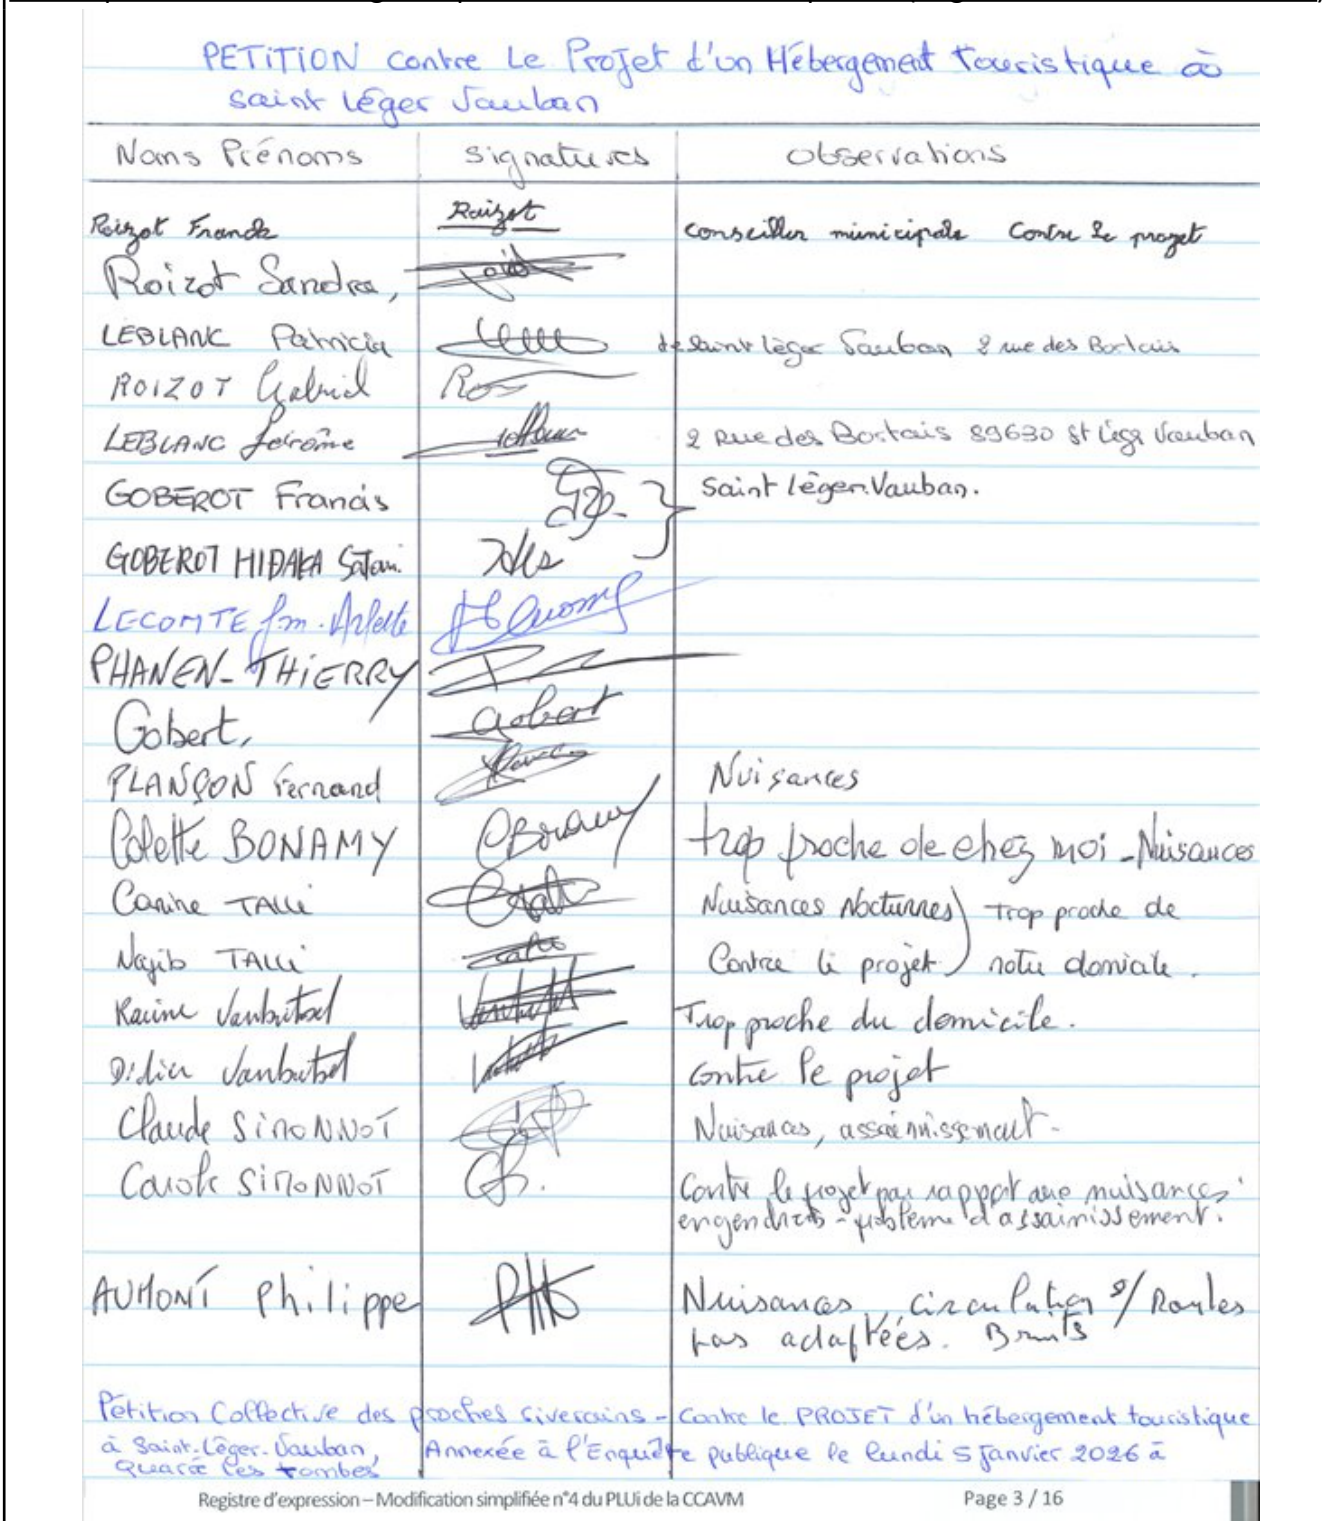 PETITION contre Le Projet d'un Hébergement touristique à
saint Léger Vauban
Noms Prénoms signatures observations
Roizot Franck Roizot conseiller municipale Contre Le projet
Roizot Sandra,
LEBLANC Patricia de Saint Léger Vauban 2 rue des Bortais
ROIZOT Gabriel Roz
LEBLANC Jérôme 2 Rue des Bortais 89630 St Léger Vauban
GOBEROT Francis Saint Léger.Vauban.
GOBEROT HIDAKA
LECOMTE Arlette
PHANEN-THIERRY
Gobert, Gobert
PLANÇON Fernand Nuisances
Colette BONAMY CBonamy trop proche de chez moi - Nuisances
Carine TALLI Nuisances Nocturnes) Trop proche de
Najib TALLI Contre le projet) notre domicile.
Karine Vanbutsel Trop proche du domicile.
Didier Vanbutsel Contre le projet
Claude SIMONNOT Nuisances, assainissement-
Carole SIMONNOT Contre le projet par rapport aux nuisances
engendrées - problème d'assainissement.
AUMONT Philippe Nuisances, circulation s/ Routes
pas adaptées. Bruits
Pétition Collective des proches riverains - Contre le PROJET d'un hébergement touristique
à Saint-Léger-Vauban, Annexée à l'Enquête publique le lundi 5 Janvier 2026 à
Quarré les tombes
Registre d'expression – Modification simplifiée n°4 du PLUi de la CCAVM Page 3 / 16